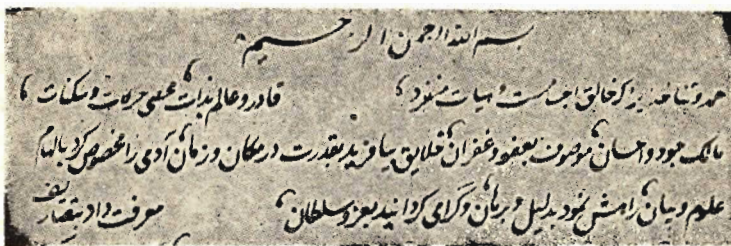 بسم الله الرحمن الرحيم
حمد و ثنا خدایرا که خالق اجسامست و هیات منفرد، قادر و عالم بذات، محصی حرکات و سکنات،
مالک جود و احسان، موصوف بعفو و غفران، خلایق بیافرید بقدرت در مکان و زمان، آدمی را مخصوص کرد بالهام
علوم و بیان، رامش نمود بدلیل و برهان، و گرامی گردانید بعز و سلطان، معرفت داد بتصاریف